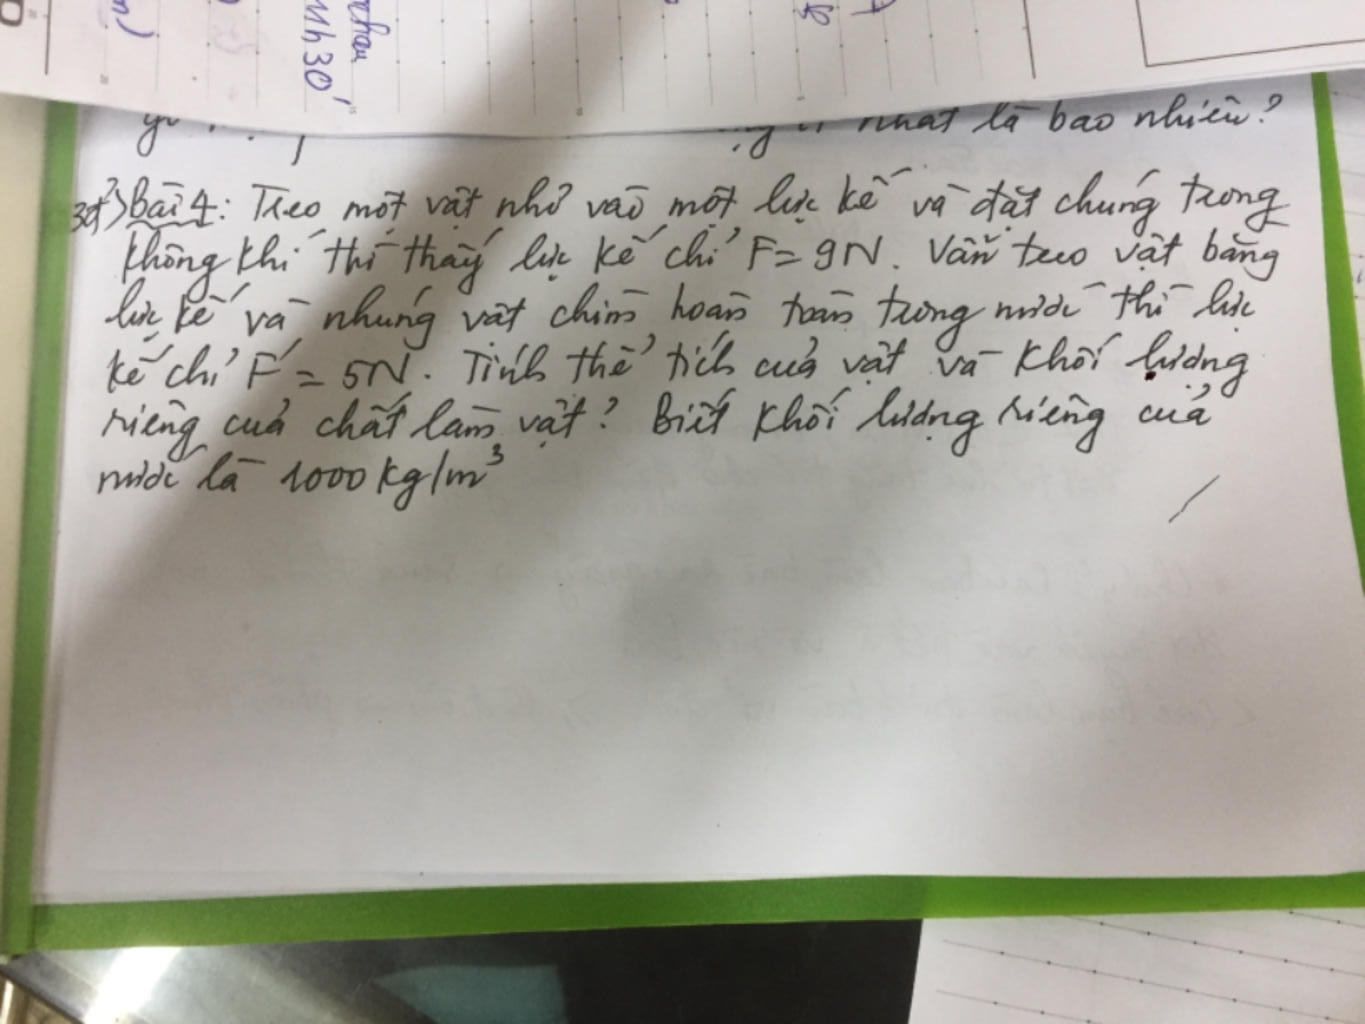 11h30'
nhất là bao nhiêu?
3đ> Bài 4: Treo một vật nhỏ vào một lực kế và đặt chúng trong
không khí thì thấy lực kế chỉ F = 9N. Vẫn treo vật bằng
lực kế và nhúng vật chìm hoàn toàn trong nước thì lực
kế chỉ F' = 5N. Tính thể tích của vật và khối lượng
riêng của chất làm vật? Biết khối lượng riêng của
nước là 1000kg/m³